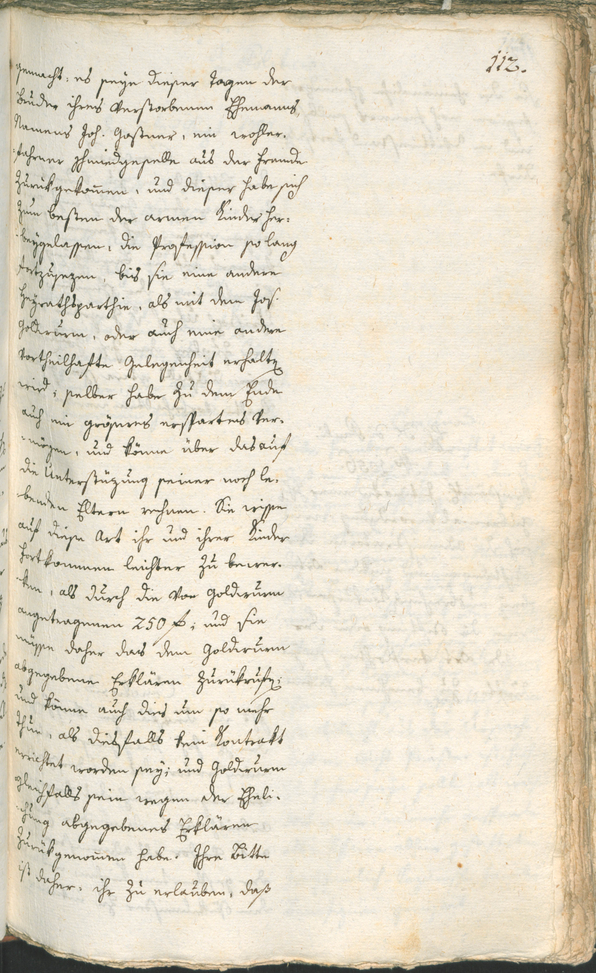 112.
gemacht: es seye dieser Tagen der
Bruder ihres verstorbenen Ehemanns,
Namens Joh. Gastner, ein wohler-
fahrner Schmiedgeselle aus der Fremde
zurükgekommen, und dieser habe sich
zum besten der armen Kinder her-
beygelassen, die Profession so lang
fortzusezen, bis sie eine andere
Heyrathsparthie, als mit dem Jos.
Goldwurm, oder auch eine andere
vortheilhafte Gelegenheit erhalten
wird; selber habe zu dem Ende
auch ein grösseres erspartes Ver-
mögen, und könne über das auf
die Unterstüzung seiner noch le-
benden Eltern rechnen. Sie wisse
auf diese Art ihr und ihrer Kinder
Fortkommen leichter zu bewir-
ken, als durch die von Goldwurm
angetragenen 250 f; und sie
müsse daher das dem Goldwurm
abgegebene Erklären zurükrufen;
und könne auch dies um so mehr
thun, als diesfalls kein Kontrakt
errichtet worden sey; und Goldwurm
gleichfalls sein wegen der Eheli-
chung abgegebenes Erklären
zurükgenommen habe. Ihre Bitte
ist daher, ihr zu erlauben, daß